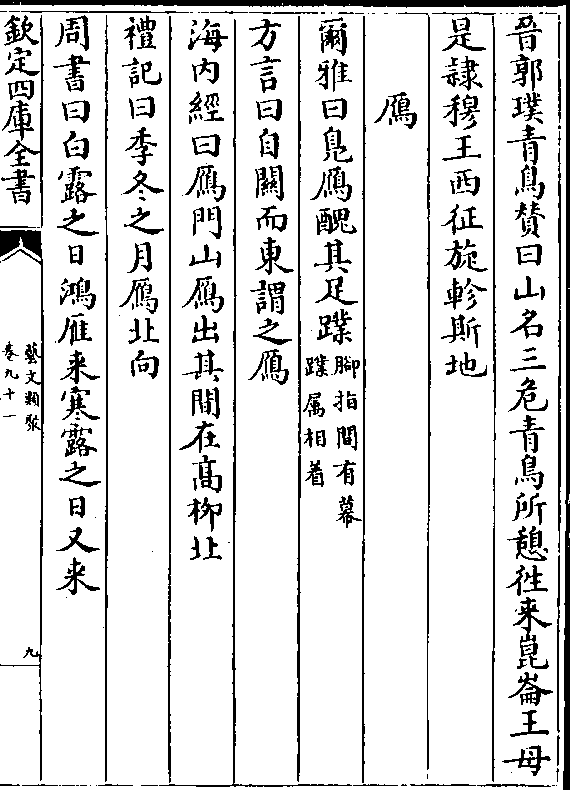 晉郭璞青鳥賛曰山名三危青鳥所憩徃来崑崙王母
是隷穆王西征旋軫斯地
鴈
爾雅曰鳬鴈醜其足蹼腳指間有幕蹼属相着
方言曰自關而東謂之鴈
海内經曰鴈門山鴈出其間在髙柳北
禮記曰季冬之月鴈北向
周書曰白露之日鴻雁来寒露之日又来
欽定四庫全書
藝文類聚
卷九十一
九